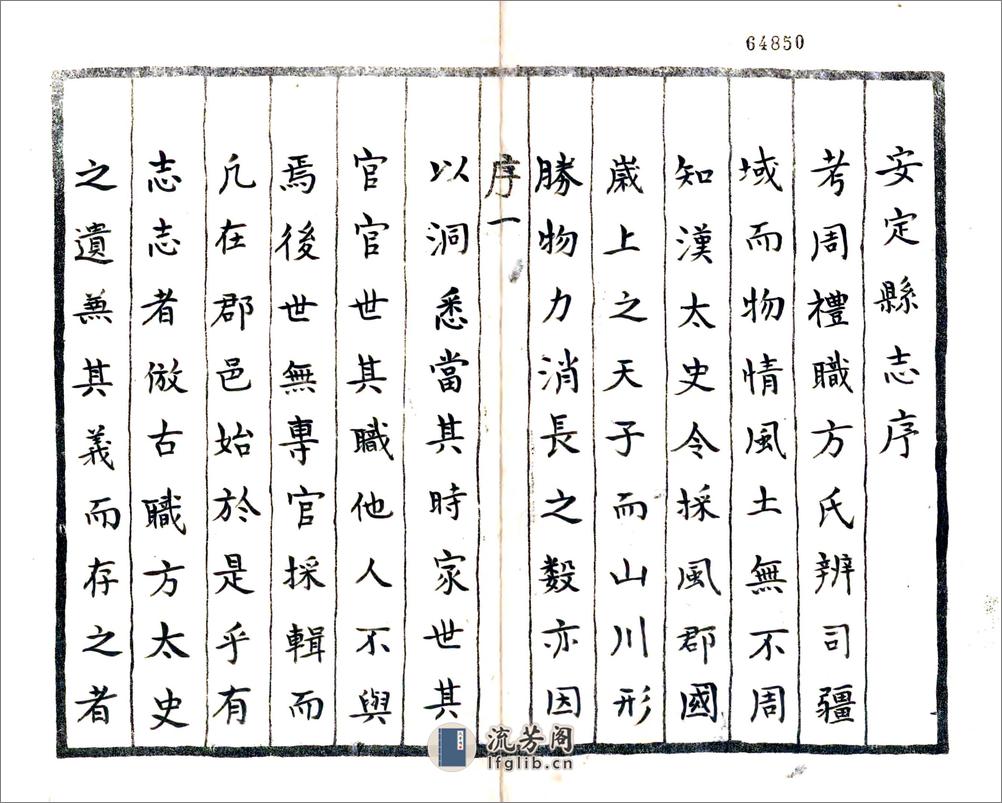 64850
安定縣志序
考周禮職方氏辨司疆
域而物情風土無不周
知漢太史令採風郡國
歲上之天子而山川形
勝物力消長之數亦因
序一
以洞悉當其時家世其
官官世其職他人不與
焉後世無專官採輯而
凡在郡邑始於是乎有
志志者倣古職方太史
之遺兼其義而存之者
流芳阁
lfglib.cn